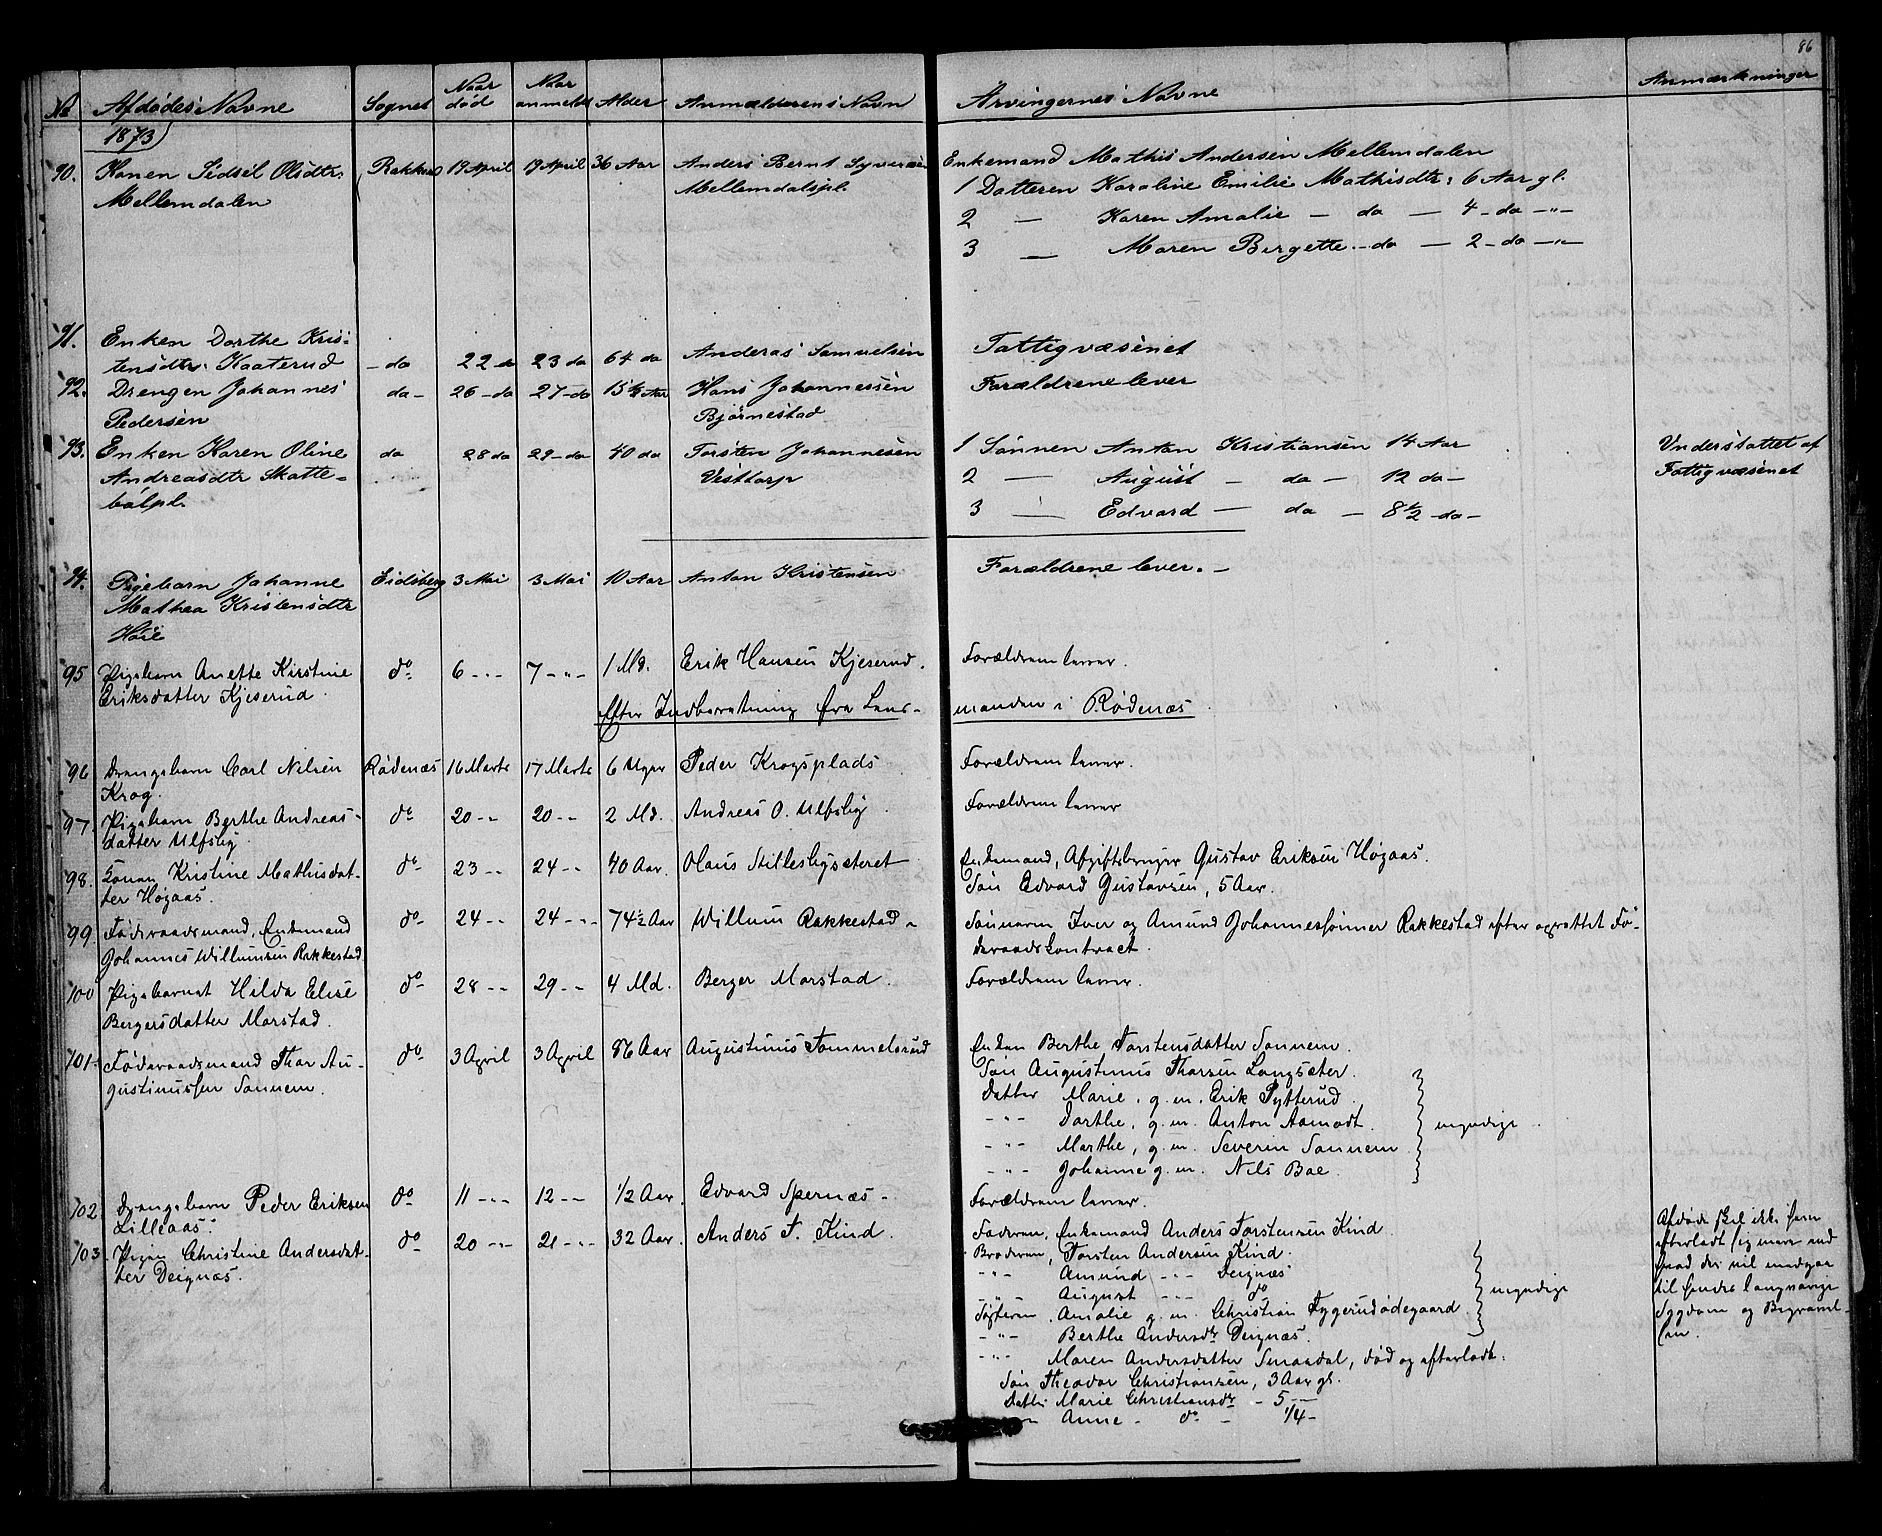 86
No Afdødes Navne Sognet Naar død Naar anmeldt Alder Anmælderens Navn Arvingernes Navne Anmærkninger
1873
90. Konen Sidsel Olsdtr. Rakkest 19 April 19 April 36 Aar Anders Bernt Syversen Enkemand Mathis Andersen Mellemdalen
Mellemdalen Mellemdalspl. 1 Datteren Karoline Emilie Mathisdtr: 6 Aar gl.
2 — Karen Amalie — do — 4 - do -"-
3 — Maren Birgette - do — 2 - do -"-
91. Enken Dorthe Kris-
tensdtr. Kaaterud - do 22 do 23 do 64 do Anderas Samuelsen Fattigvæsenet
92. Drengen Johannes do - 26 - do 27 - do 15 ½ Aar Hans Johannessen Forældrene lever
Pedersen Bjørnestad
93. Enken Karen Oline do 28 do 29 - do 40 do Torsten Johannesen 1 Sønnen Anton Kristiansen 14 Aar Understøttet af
Andreasdtr Skatte- Vesttorp 2 — August — do — 12 do - Fattigvæsenet
bølpl. 3 — Edvard — do — 8 ½ - do -
94. Pigebarn Johanne Eidsberg 3 Mai 3 Mai 10 Aar Anton Kristensen Forældrene lever. -
Mathea Kristensdtr
Høie
95 Pigebarn Anette Kirstine do 6 -"- 7 -"- 1 Md. Erik Hansen Kjeserud. Forældrene lever.
Eriksdatter Kjeserud.
Efter Indberetning fra Lens- manden i Rødenæs
96 Drengebarn Carl Nilsen Rødenæs 16 Marts 17 Marts 6 Uger Peder Krogsplads Forældrene lever.
Krog.
97. Pigebarn Berthe Andreas- do 20 -"- 20 -"- 2 Md. Andreas O. Ulfslig Forældrene lever
datter Ulfslig.
98. Konen Kristine Mathisdat- do 23 -"- 24 -"- 40 Aar. Olaus Stitlesbysæteret Enkemand, Afgiftsbruger Gustav Eriksen Høgaas.
ter Høgaas. Søn Edvard Gustavsen, 5 Aar.
99. Føderaadsmand, Enkemand do 24 -"- 24 -"- 74½ Aar Willum Rakkestad - Sønnerne Iver og Amund Johannessønner Rakkestad efter oprettet Fø-
Johannes Willumsen Rakkestad deraadskontract.
100 Pigebarnet Hilda Elise do 28 -"- 29 -"- 4 Md. Berger Morstad. Forældrene lever.
Bergersdatter Morstad.
101. Føderaadsmand Thor Au- do 3 April 3 April 86 Aar Augustinus Tommelsrud Enken Berthe Torstensdatter Sonnem.
gustinussen Sonnem. Søn Augustinus Thorsen Langsæter.
Datter Marie, g. m. Erik Pytterud
-"- Dorthe, g. m. Anton Aamodt. myndige.
-"- Marthe, g. m. Severin Sonnem
-"- Johanne g. m. Nils Boe.
102 Drengebarn Peder Eriksen do 11 -"- 12 -"- 1/2 Aar. Edvard Spernæs - Forældrene lever.
Lilleaas.
103. Pigen Christine Andersdat- do 20 -"- 21 -"- 32 Aar. Anders T. Kind. Faderen, Enkemand Anders Torstensen Kind
ter Deignæs. Broderen, Torsten Andersen Kind.
-"- Amund -"- Deignæs
-"- August -"- do myndige
Søsteren, Amalie g. m. Christian Tyggerudødegaard
-"- Berthe Andersdr Deignæs.
-"- Maren Andersdatter Smaadal, død og efterladt:
Søn Theodor Christiansen, 3 Aar gl.
Datter Marie Christiansdr - 5 -"-
Anne - do - 1/4 -
Afdøde skal ikke have
efterladt sig mere end
hvad der vil medgaa
til hendes langvarige
Sygdom og Begravel-
sen.